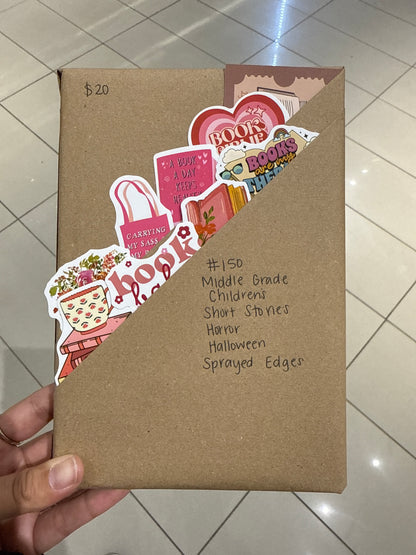 $20
BOOK
BOOKS
are my
THERA
A BOOK
A DAY
KEEPS
CARRYING
MY SASS
MY
book
#150
Middle Grade
Childrens
Short Stories
Horror
Halloween
Sprayed Edges